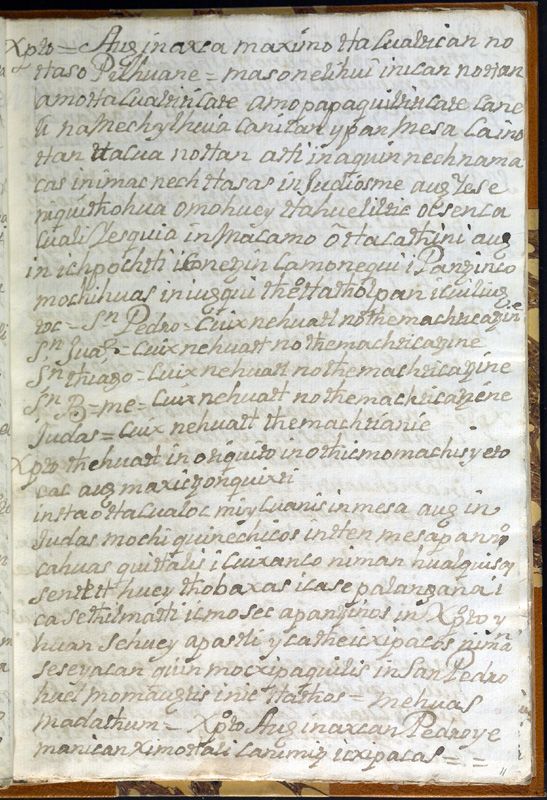 Xpto = Aug inaxca maximo ttaCualtican no
ttaso Pilhuane = mas onelihui inican nottan
amottaCualtiticate amo papaquilticate cane
li naMechylhuia canican ypan Mesa Caino
ttan ttaCua nottan asti inaquin nechnama
cas inimac nechttasas in Judiosme aug Yese
niquittohua omohuey ttahueliltic ocsenca
Cuali Yesquia in Macamo Ottacathini aug
in ichpochtli iConegin Camonequi i Panginco
mochihuas iniugqui theottatholpan icuiliug
toc = Sn Pedro = Cuix nehuatl nothemachticagine
Sn Jua = Cuix nehuatl nothemachticagine
Sn thiago - Cuix nehuatl nothemachticagine
Sn B = me - Cuix nehuatl nothemachticagene
Judas = Cuix nehuatl themachtianie
Xpto thehuatl in oriquito in othicmomachis yeto
cac aug maxicyonquixti
insta ottaCualoc miyCuanis in mesa aug in
Judas mochi quinechicos in tten mesa pan
cahuas quittalis iCuixanco niman hualquisas
sentett huey thobaxas icase palangana i
ca setthilmatti icmosec apanginos in Xpto y
huan Sehuey apastli yca theicxipacos nima
seseyacan quin mocxipaquilis in San Pedro
huel momaugtis inic ttathos = mehuas
madathum = Xpto Aug inaxcan Pedroye
manican ximottali Canimiz icxipacas = =
11